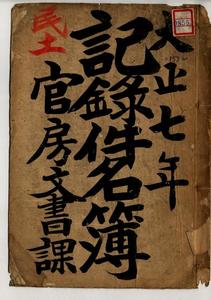 大正七年
民土
記錄件名簿
官房文書課